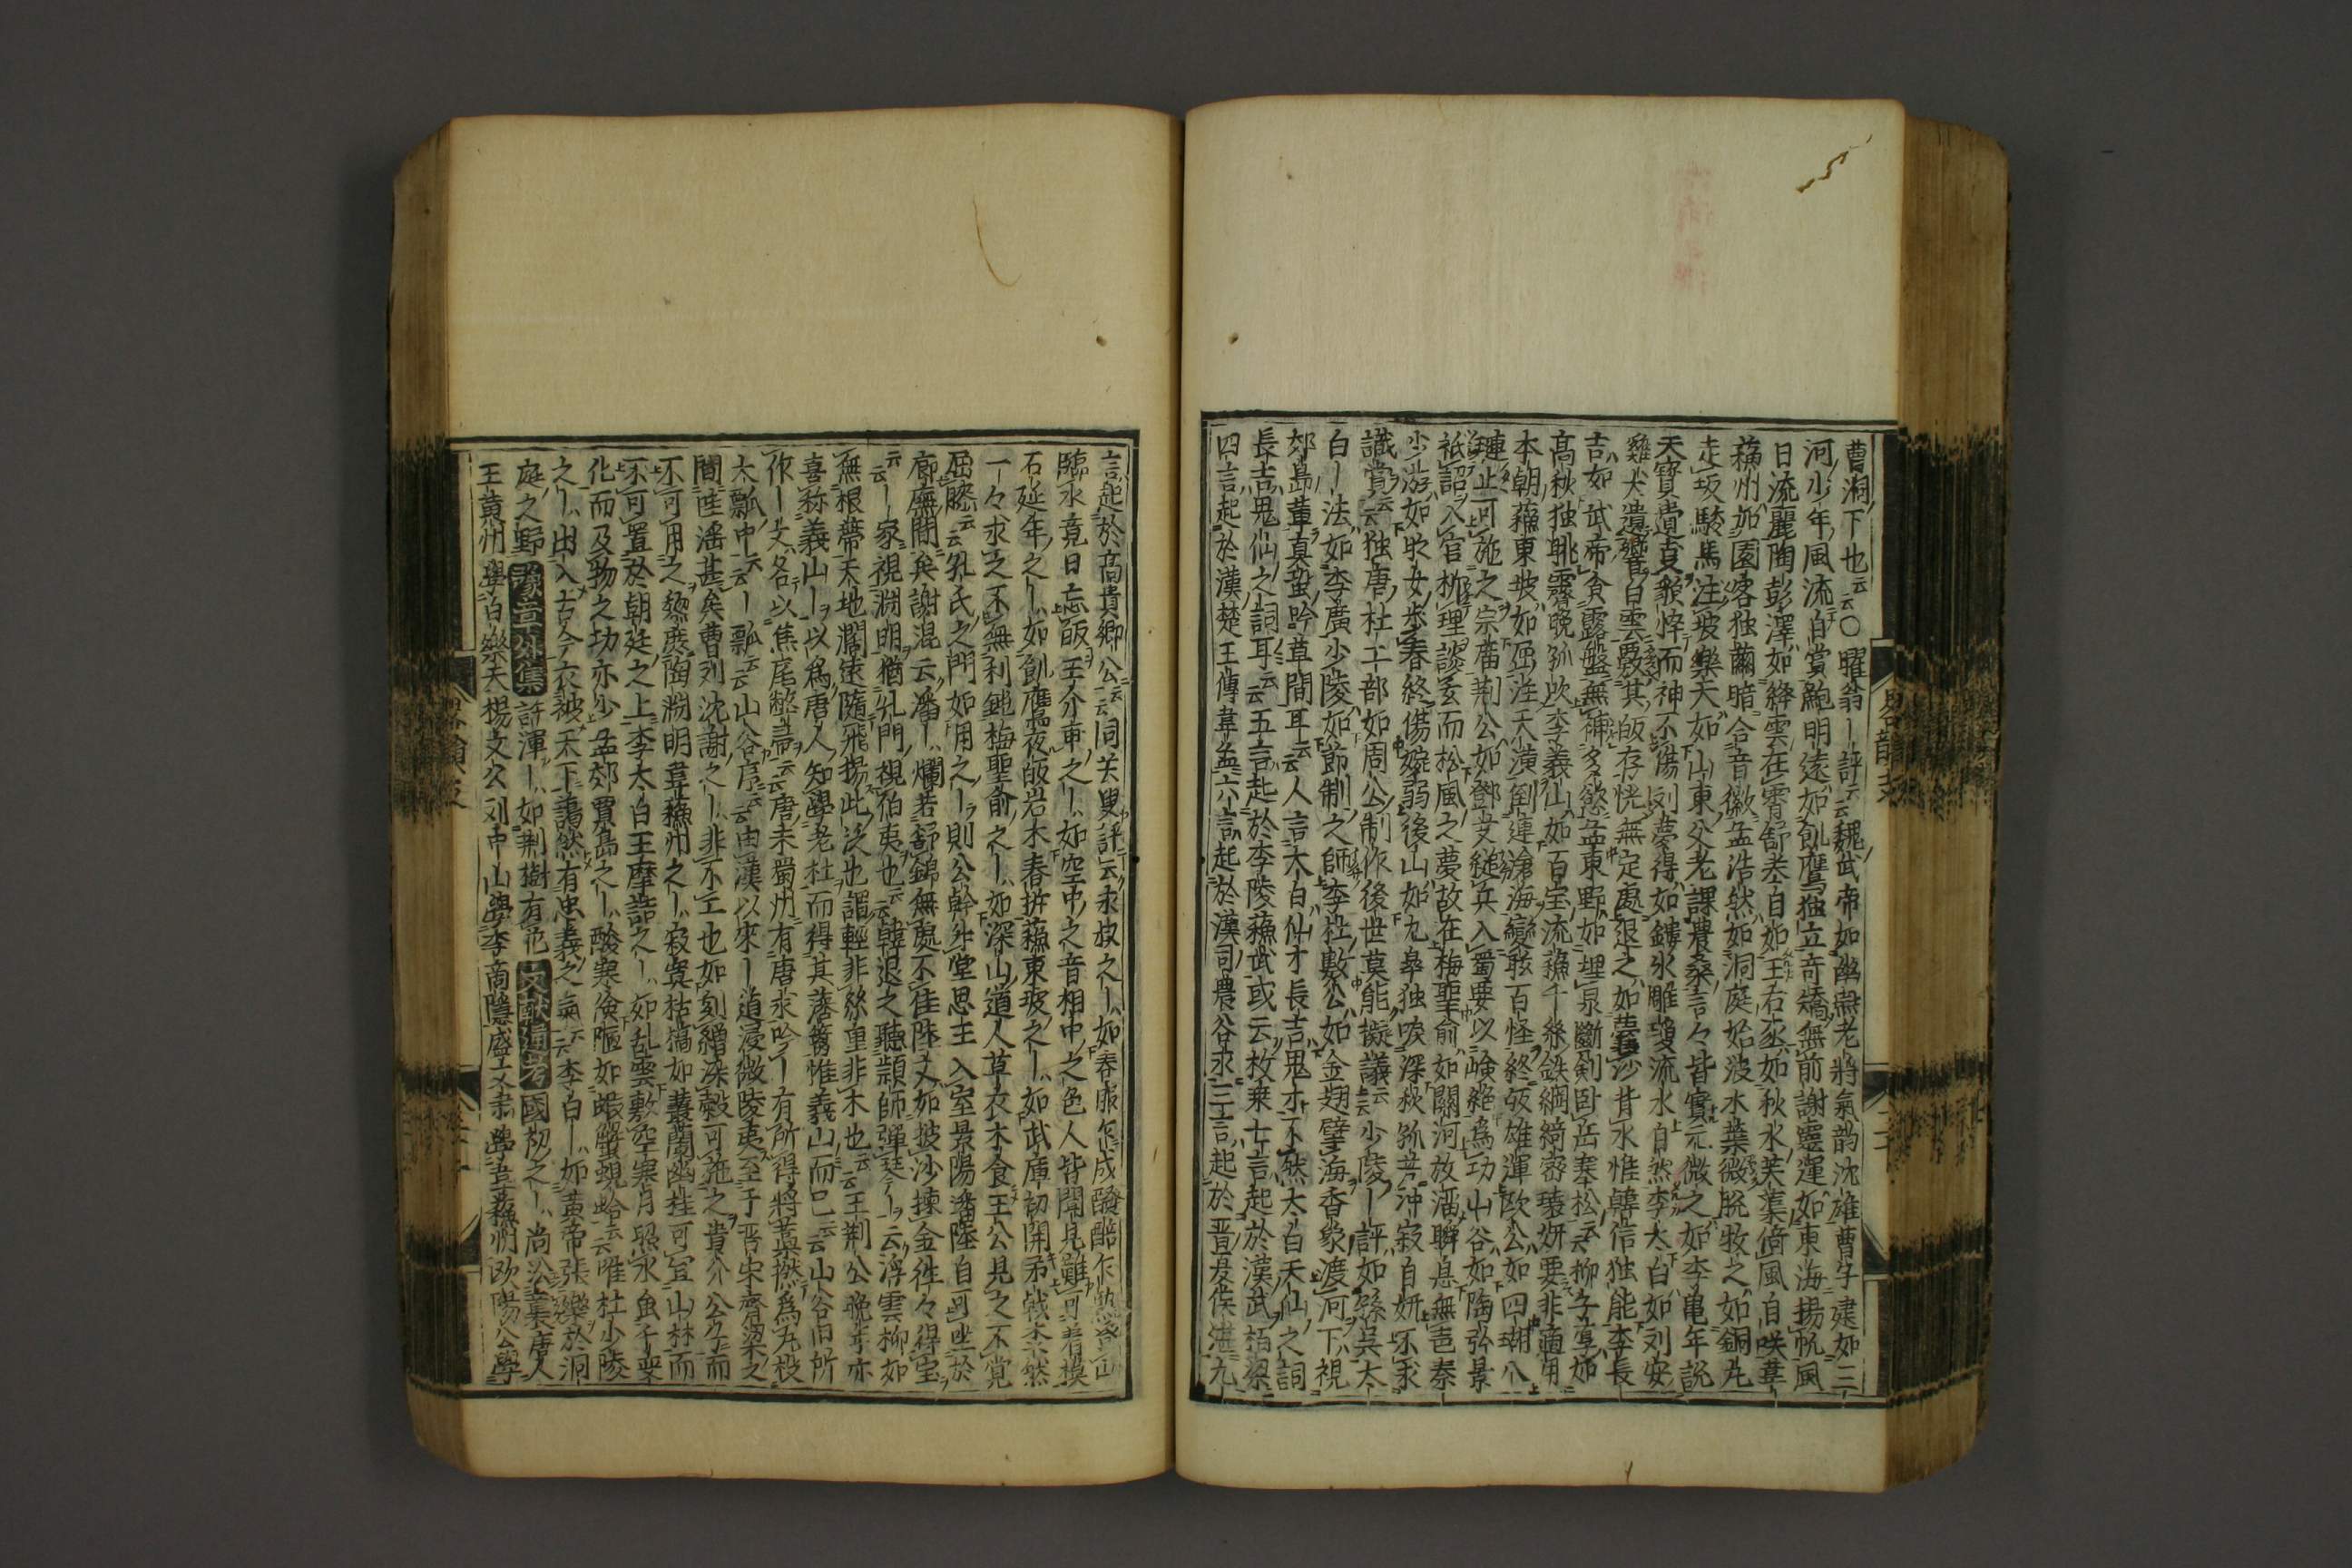 曹洞下也云云〇曜翁｜評云魏武帝如幽燕老將氣韵沈雄曹子建如三
河少年風流自賞鮑明遠如飢鷹独立竒矯無前謝靈運如東海揚帆風
日流麗陶彭澤如絳雲在霄舒卷自如王右丞如秋水芙蕖倚風自咲韋
蘓州如園客独繭暗合音徽孟浩然如洞庭始波木葉微脱牧之如銅丸
走坂駿馬注坡樂天如山東父老課農桑言々皆實元微之如李亀年説
天寳遺夏貌悴而神不傷刘夢得如鏤氷雕瓊流水自然李太白如刘安
雞犬遺響白雲覈其皈存恍無定處退之如囊沙背水惟韓信独能李長
吉如武帝食露盤無補多慾孟東野如埋泉斷剣卧壑寒松云云柳子厚如
高秋独眺霽晚孤吹李義山如百宝流蘓千絲鉄網綺密瓌妍要非適用
本朝蘓東坡如屈注天潢倒連滄海變眩百怪終皈雄渾歐公如四瑚八
璉止可施之宗庿荆公如鄧艾縋兵入蜀要以嶮絶爲功山谷如陶弘景
祗詔入官析理談玄而松風之夢故在梅聖俞如關河放溜瞬息無声秦
少游如時女歩春終傷婉弱後山如九皐独唳深秋孤芳冲寂自妍不求
識賞云云独唐杜工部如周公制作後世莫能擬議云云少陵｜評如孫吳太
白｜法如李廣少陵如節制之師李杜數公如金翅擘海香象渡河下視
郊島輩真蛩吟草間耳云云人言太白仙才長吉鬼才不然太白天仙之詞
長吉鬼仙之詞耳云云五言起於李陵蘓武或云枚乗七言起於漢武栢梁
四言起於漢楚王傳韋孟六言起於漢司農谷永三言起於晋夏侯湛九
言起於高貴卿公云云同关叟評云永叔之｜如春服乍成醱醅乍熟登山
臨水竟日忘皈王介甫之｜如空中之音相中之色人皆聞見難可着模
石延年之｜如飢鷹夜皈岩木春拆蘓東坡之｜如武庫初開矛戟森然
一々求之不無利鈍梅聖俞之｜如深山道人草衣木食王公見之不覚
屈膝云云孔氏之門如用之｜則公幹升堂思王入室景陽潘陸自可坐於
廊廡間矣謝混云潘｜爛若舒錦無處不佳陸文如披沙揀金往々得宝
云云｜家視淵明猶孔門視伯夷也云云韓退之聽頴師弾琴｜云浮雲柳如
無根蔕天地濶遠隨飛揚此泛也謂輕非絲重非木也云云王荆公晚年亦
喜称義山｜以爲唐人知學老杜而得其藩籬惟義山而已云云山谷旧所
作｜文名以焦尾弊帚云云唐末蜀州有唐求吟｜有所得將藁撚爲丸投
大瓢中云云｜瓢云云山谷序云云由漢以來｜道浸微陵夷至于晋宋齊梁之
間唯淫甚矣曹刘沈謝之｜非不工也如刻繒染縠可施之貴介公子而
不可用之黎庶陶淵明韋蘓州之｜寂寞枯槁如叢蘭幽桂可宜山林而
不可置於朝廷之上李太白王摩詰之｜如乱雲敷空寒月照水虽千変
化而及物之功亦少孟郊賈島之｜酸寒儉陋如蝦蟹蜆蛤云云唯杜少陵
之｜出入古今衣被天下藹然有忠義之氣云云李白｜如黄帝張樂於洞
庭之野豫章外集許渾｜如荆樹有花文献通考國初之｜尚㳂襲唐人
王黄州學白樂天楊文公刘中山學李商隱盛文肅學韋蘓州欧陽公學